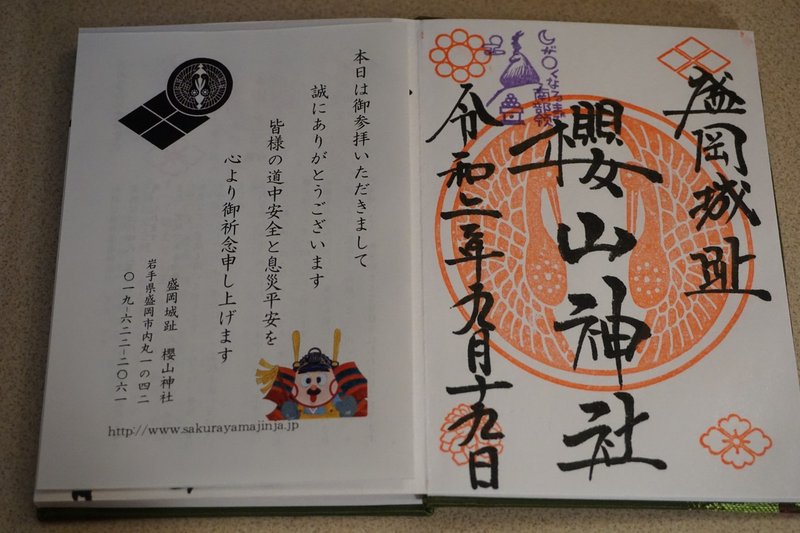 盛岡城趾
櫻山神社
が〇くなるまで
南部領
令和二年九月十九日
本日は御参拝いただきまして
誠にありがとうございます
皆様の道中安全と息災平安を
心より御祈念申し上げます
盛岡城趾 櫻山神社
岩手県盛岡市内丸一の四二
〇一九-六二二-二〇六一
http://www.sakurayamajinja.jp